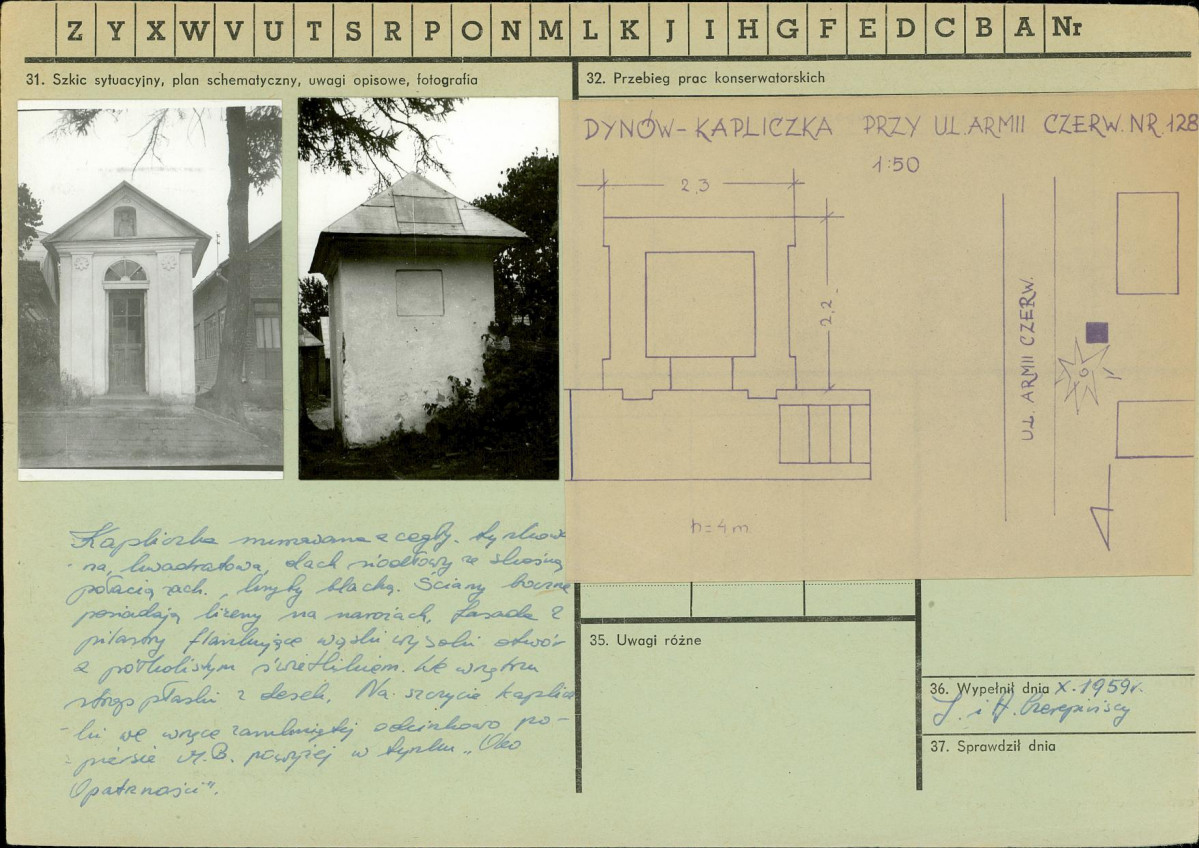 Z Y X W V U T S R P O N M L K J I H G F E D C B A Nr
31. Szkic sytuacyjny, plan schematyczny, uwagi opisowe, fotografia
32. Przebieg prac konserwatorskich
DYNÓW - KAPLICZKA PRZY UL. ARMII CZERW. NR. 128
1:50
2,3
2,2
UL. ARMII CZERW.
h = 4 m.
Kapliczka murowana z cegły. tynkowa
na, kwadratowa, dach siodłowy ze skośną
połacią zach., kryty blachą. Ściany boczne
posiadają lizeny na narożach, fasada 2
pilastry flankujące wąski wysoki otwór
z półkolistym świetlikiem. We wnętrzu
strop płaski z desek. Na szczycie kaplicz
- ki we wnęce zamkniętej odcinkowo po-
piersie M.B. powyżej w tynku "Oko
Opatrzności".
35. Uwagi różne
36. Wypełnił dnia X. 1959r.
J. i A. Czerepińscy
37. Sprawdził dnia